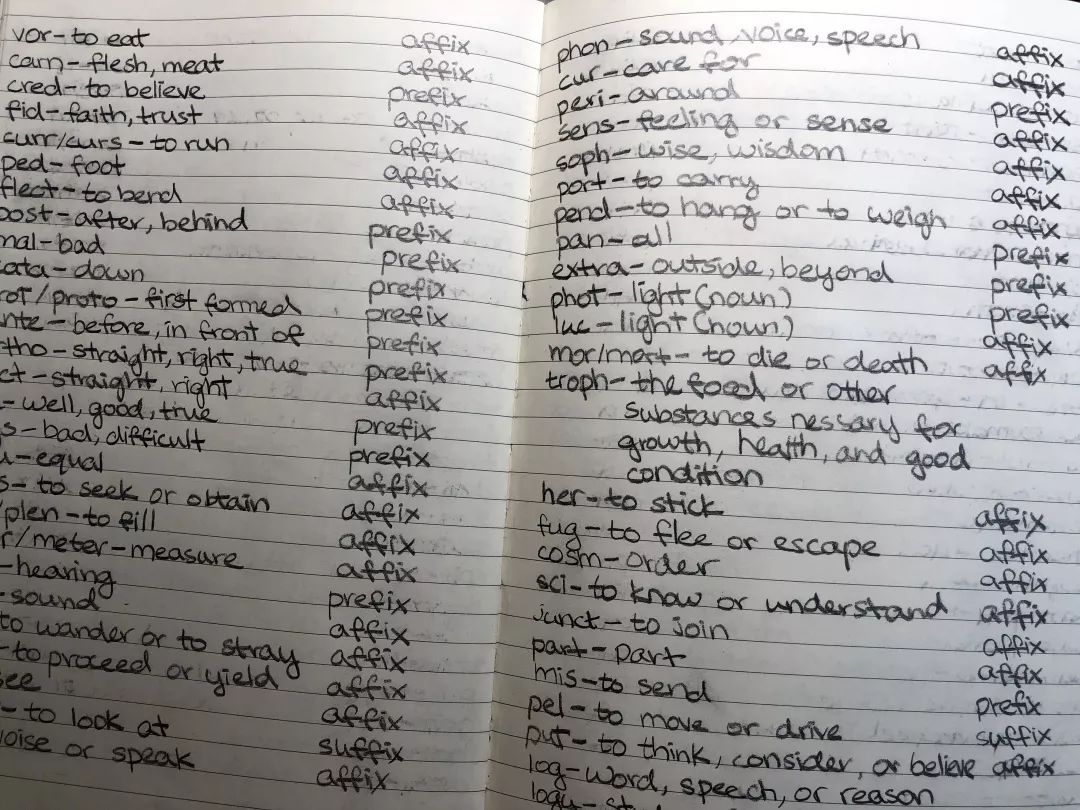 vor-to eat affix
carn-flesh, meat affix
cred-to believe prefix
fid-faith, trust affix
curr/curs-to run affix
ped-foot affix
flect-to bend affix
post-after, behind prefix
mal-bad prefix
ata-down prefix
rot/proto-first formed prefix
nte-before, in front of prefix
tho-straight, right, true prefix
ct-straight, right affix
-well, good, true prefix
s-bad, difficult prefix
u-equal affix
s-to seek or obtain affix
/plen-to fill affix
r/meter-measure affix
-hearing prefix
-sound affix
to wander or to stray affix
-to proceed or yield affix
see affix
-to look at suffix
voise or speak affix
phon-sound, voice, speech affix
cur-care for affix
peri-around prefix
sens-feeling or sense affix
soph-wise, wisdom affix
port-to carry affix
pend-to hang or to weigh affix
pan-all prefix
extra-outside, beyond prefix
phot-light (noun) prefix
luc-light (noun) affix
mor/mort-to die or death affix
troph-the food or other
substances nessary for
growth, health, and good
condition
her-to stick affix
fug-to flee or escape affix
cosm-order affix
sci-to know or understand affix
junct-to join affix
part-part affix
mis-to send prefix
pel-to move or drive suffix
put-to think, consider, or believe affix
log-word, speech, or reason
logy-st